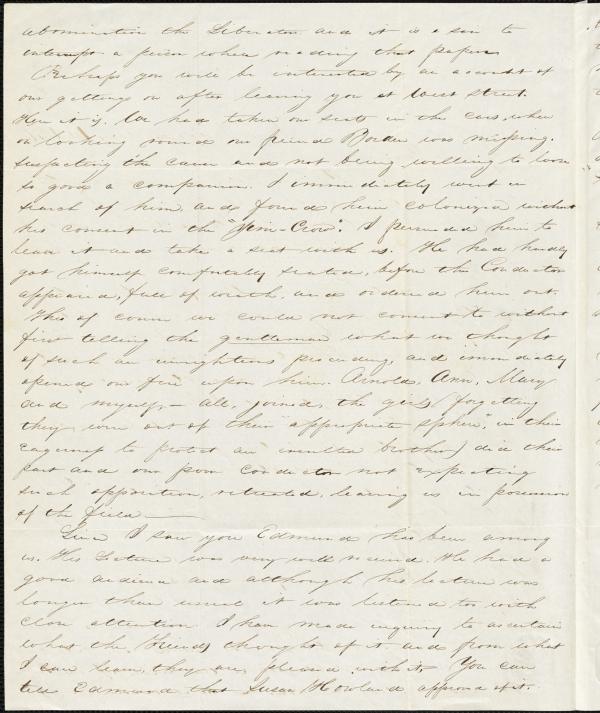 abomination the Liberator and it is a sin to
interrupt a person when reading that paper.
Perhaps you will be interested by an account of
our getting on after leaving you at West Street.
Here it is. We had taken our seats in the cars, when
on looking round our friend Borden was missing.
Suspecting the cause and not being willing to lose
so good a companion. I immediately went in
search of him, and found him colonized without
his consent in the "Jim-Crow". I persuaded him to
leave it and take a seat with us. He had hardly
got himself comfortably seated, before the Conductor
appeared, full of wrath, and ordered him out.
This of course we could not consent to without
first telling the gentleman what we thought
of such an unrighteous proceeding, and immediately
opened our fire upon him. Arnold, Ann, Mary
and myself,– all, joined, the girls (forgetting
they were out of their appropriate sphere", in their
eagerness to protect an insulted brother) did their
part and our poor conductor not expecting
such opposition, retreated, leaving us in possession
of the field —
Since I saw you Edmund has been among
us. His Lecture was very well received. He had a
good audience and although his lecture was
longer than usual it was listened too with
close attention. I have made inquiry to ascertain
what the Friends thought of it and from what
I can learn they are pleased with it. You can
tell Edmund that Susan Howland approved of it.